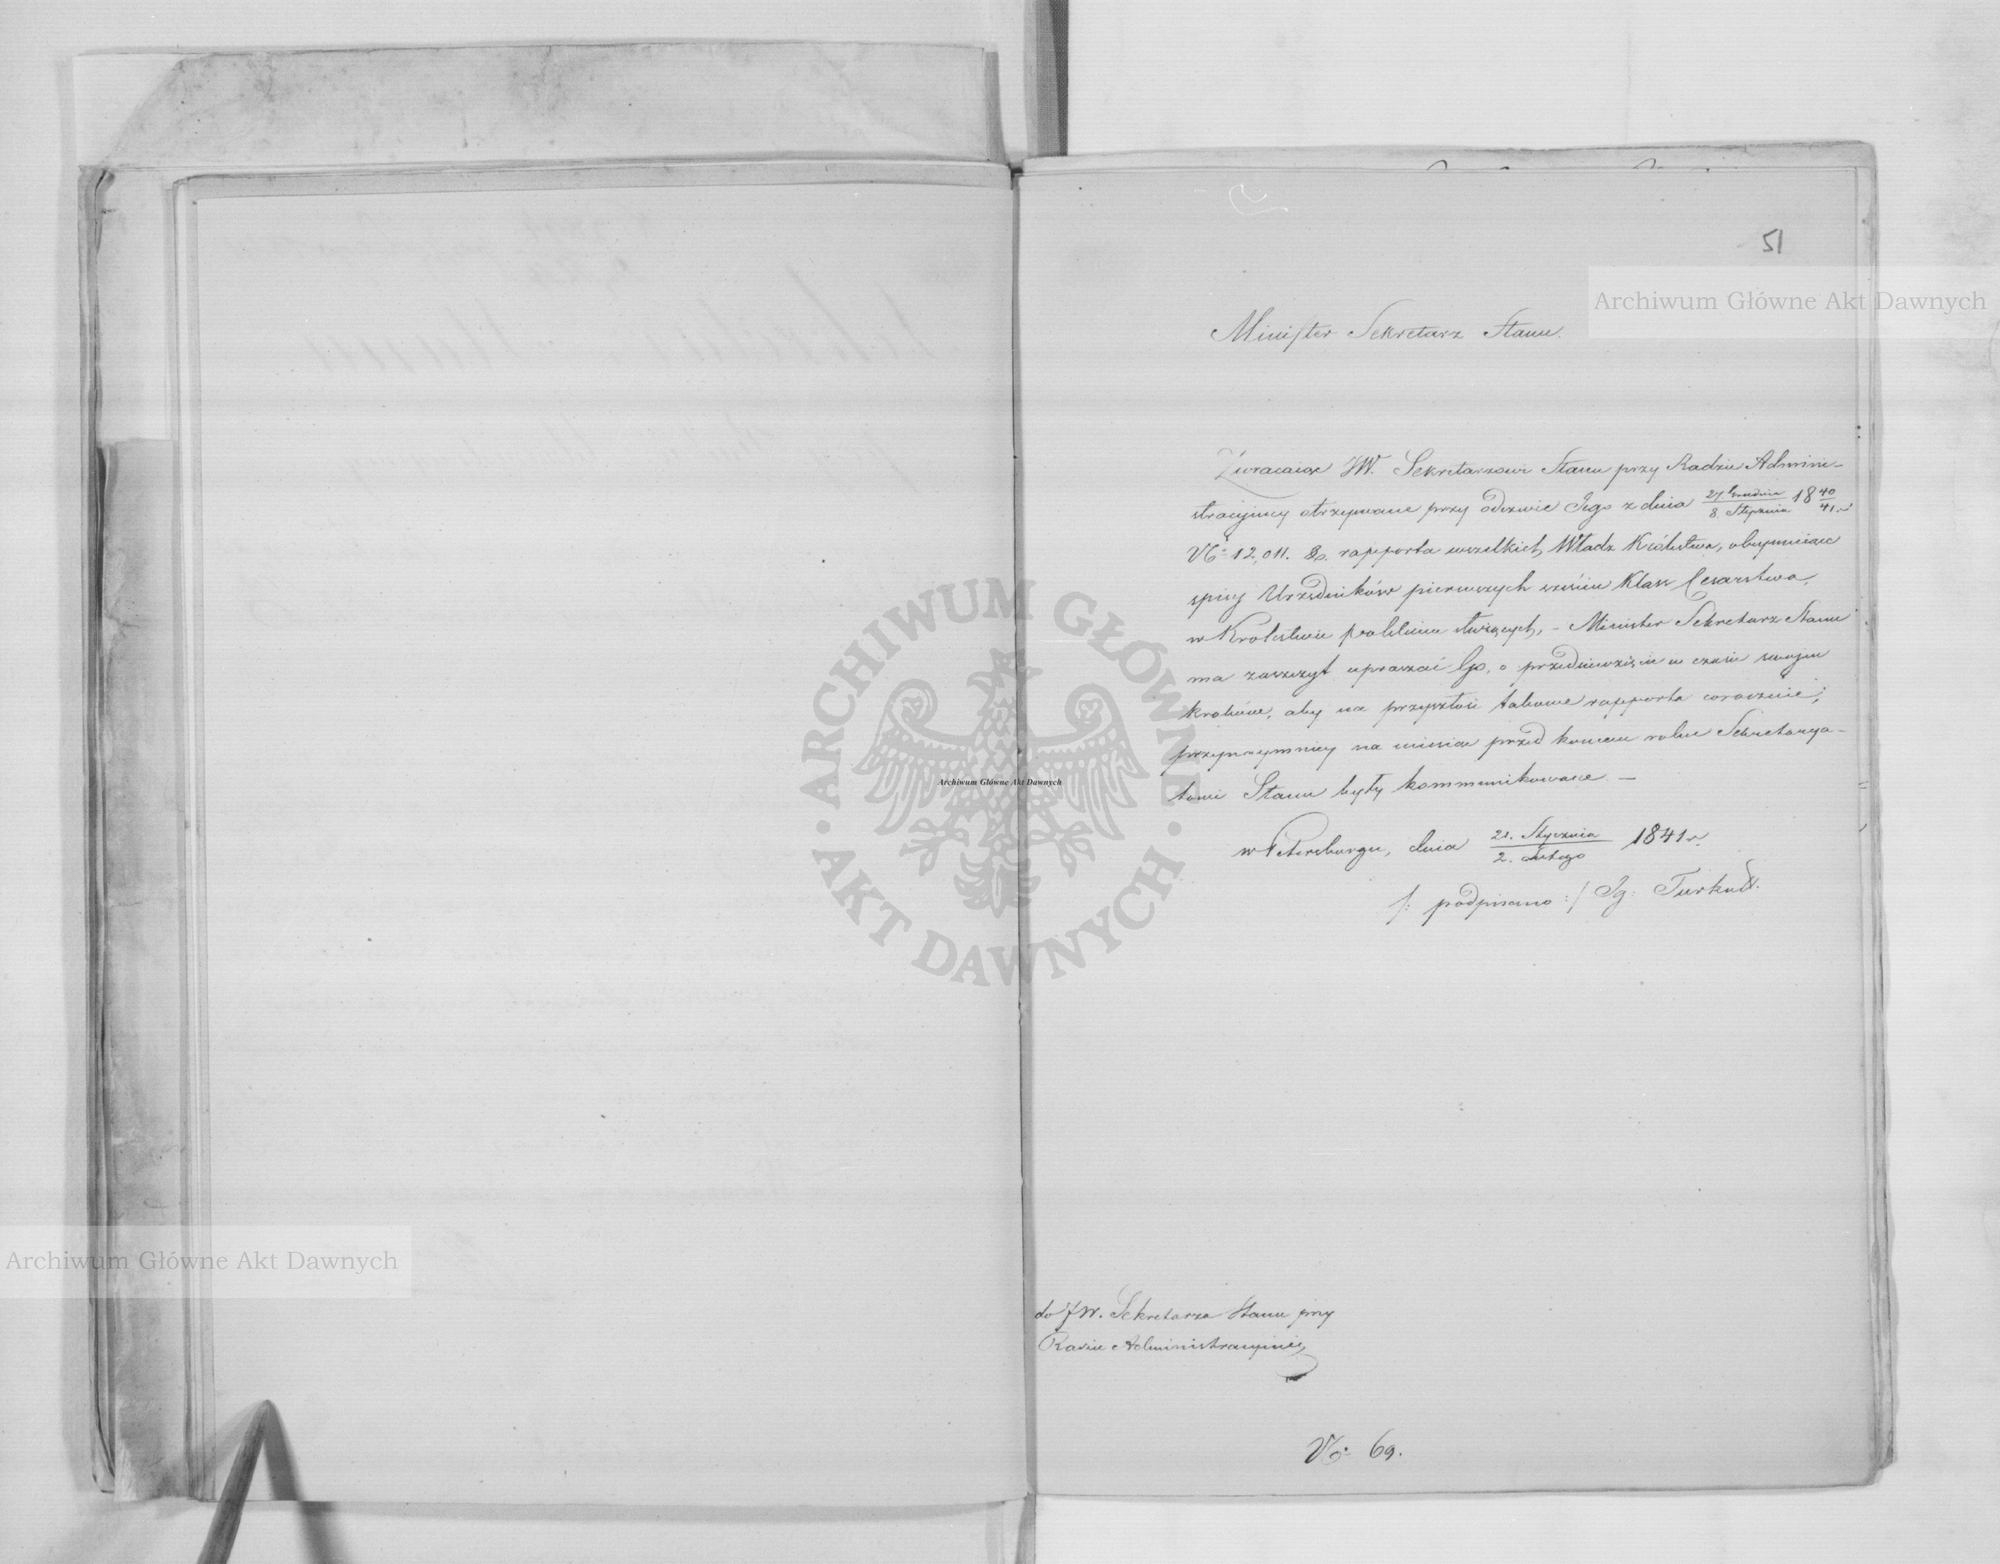 51
Archiwum Główne Akt Dawnych
Minister Sekretarz Stanu.
Zwracaiąc JW. Sekretarzowi Stanu przy Radzie Admini-
stracyjney otrzymane przy odezwie Jego z dnia 27 Grudnia / 8. Stycznia 18 40/41 r.
No 12,011. rapporta wszelkich Władz Królestwa, obeymuiące
spisy Urzędników pierwszych sześciu Klass Cesarstwa,
w Królestwie Polskiem służących, – Minister Sekretarz Stanu
ma zaszczyt upraszać Go, o przedsięwzięcie w czasie swoim
kroków, aby na przyszłość takowe rapporta corocznie,
przynaymniey na miesiąc przed końcem roku Sekretarya-
towi Stanu były kommunikowane. –
w Petersburgu, dnia 21. Stycznia / 2. Lutego 1841 r.
/: podpisano :/ Ig: Turkuł.
ARCHIWUM GŁÓWNE AKT DAWNYCH
Archiwum Główne Akt Dawnych
Archiwum Główne Akt Dawnych
do JW. Sekretarza Stanu przy
Radzie Administracyjnéy
No 69.